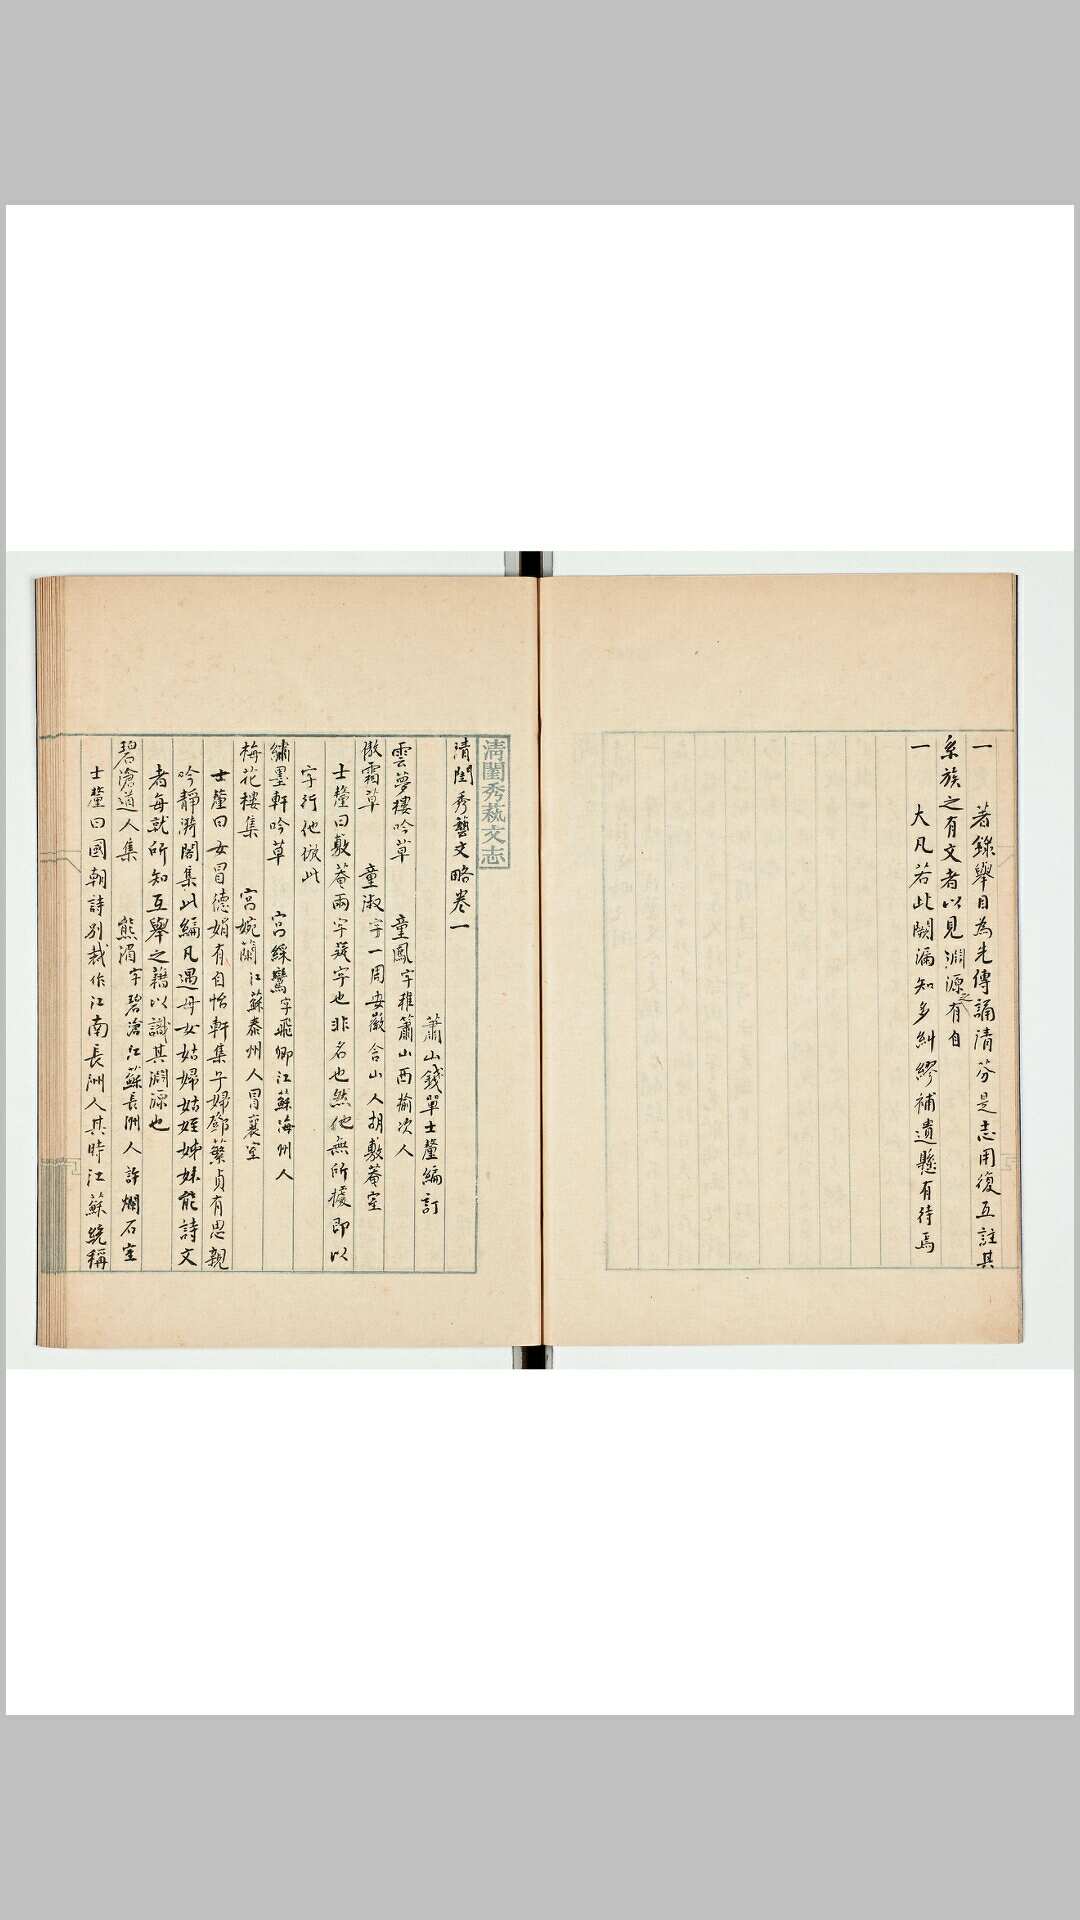 一 著錄舉目為先傳誦清芬是志用復互註其
系族之有文者以見淵源之有自
一 大凡若此闕漏知多糾繆補遺懸有待焉
清閨秀蓺文志
清閨秀藝文略卷一
蕭山錢單士釐編訂
雲夢樓吟草 童鳳字稚簫山西榆次人
傲霜草 童淑字一周安徽含山人胡敷菴室
士釐曰敷菴兩字疑字也非名也然他無所據即以
字行他倣此
繡墨軒吟草 宮綵鸞字飛卿江蘇海州人
梅花樓集 宮婉蘭江蘇泰州人冒襄室
士釐曰女冒德娟有自怡軒集子婦鄧蘩貞有思親
吟靜漪閣集此編凡遇母女姑婦姑姪姊妹能詩文
者每就所知互舉之藉以識其淵源也
碧滄道人集 熊湄字碧滄江蘇長洲人許爛石室
士釐曰國朝詩別裁作江南長洲人其時江蘇統稱